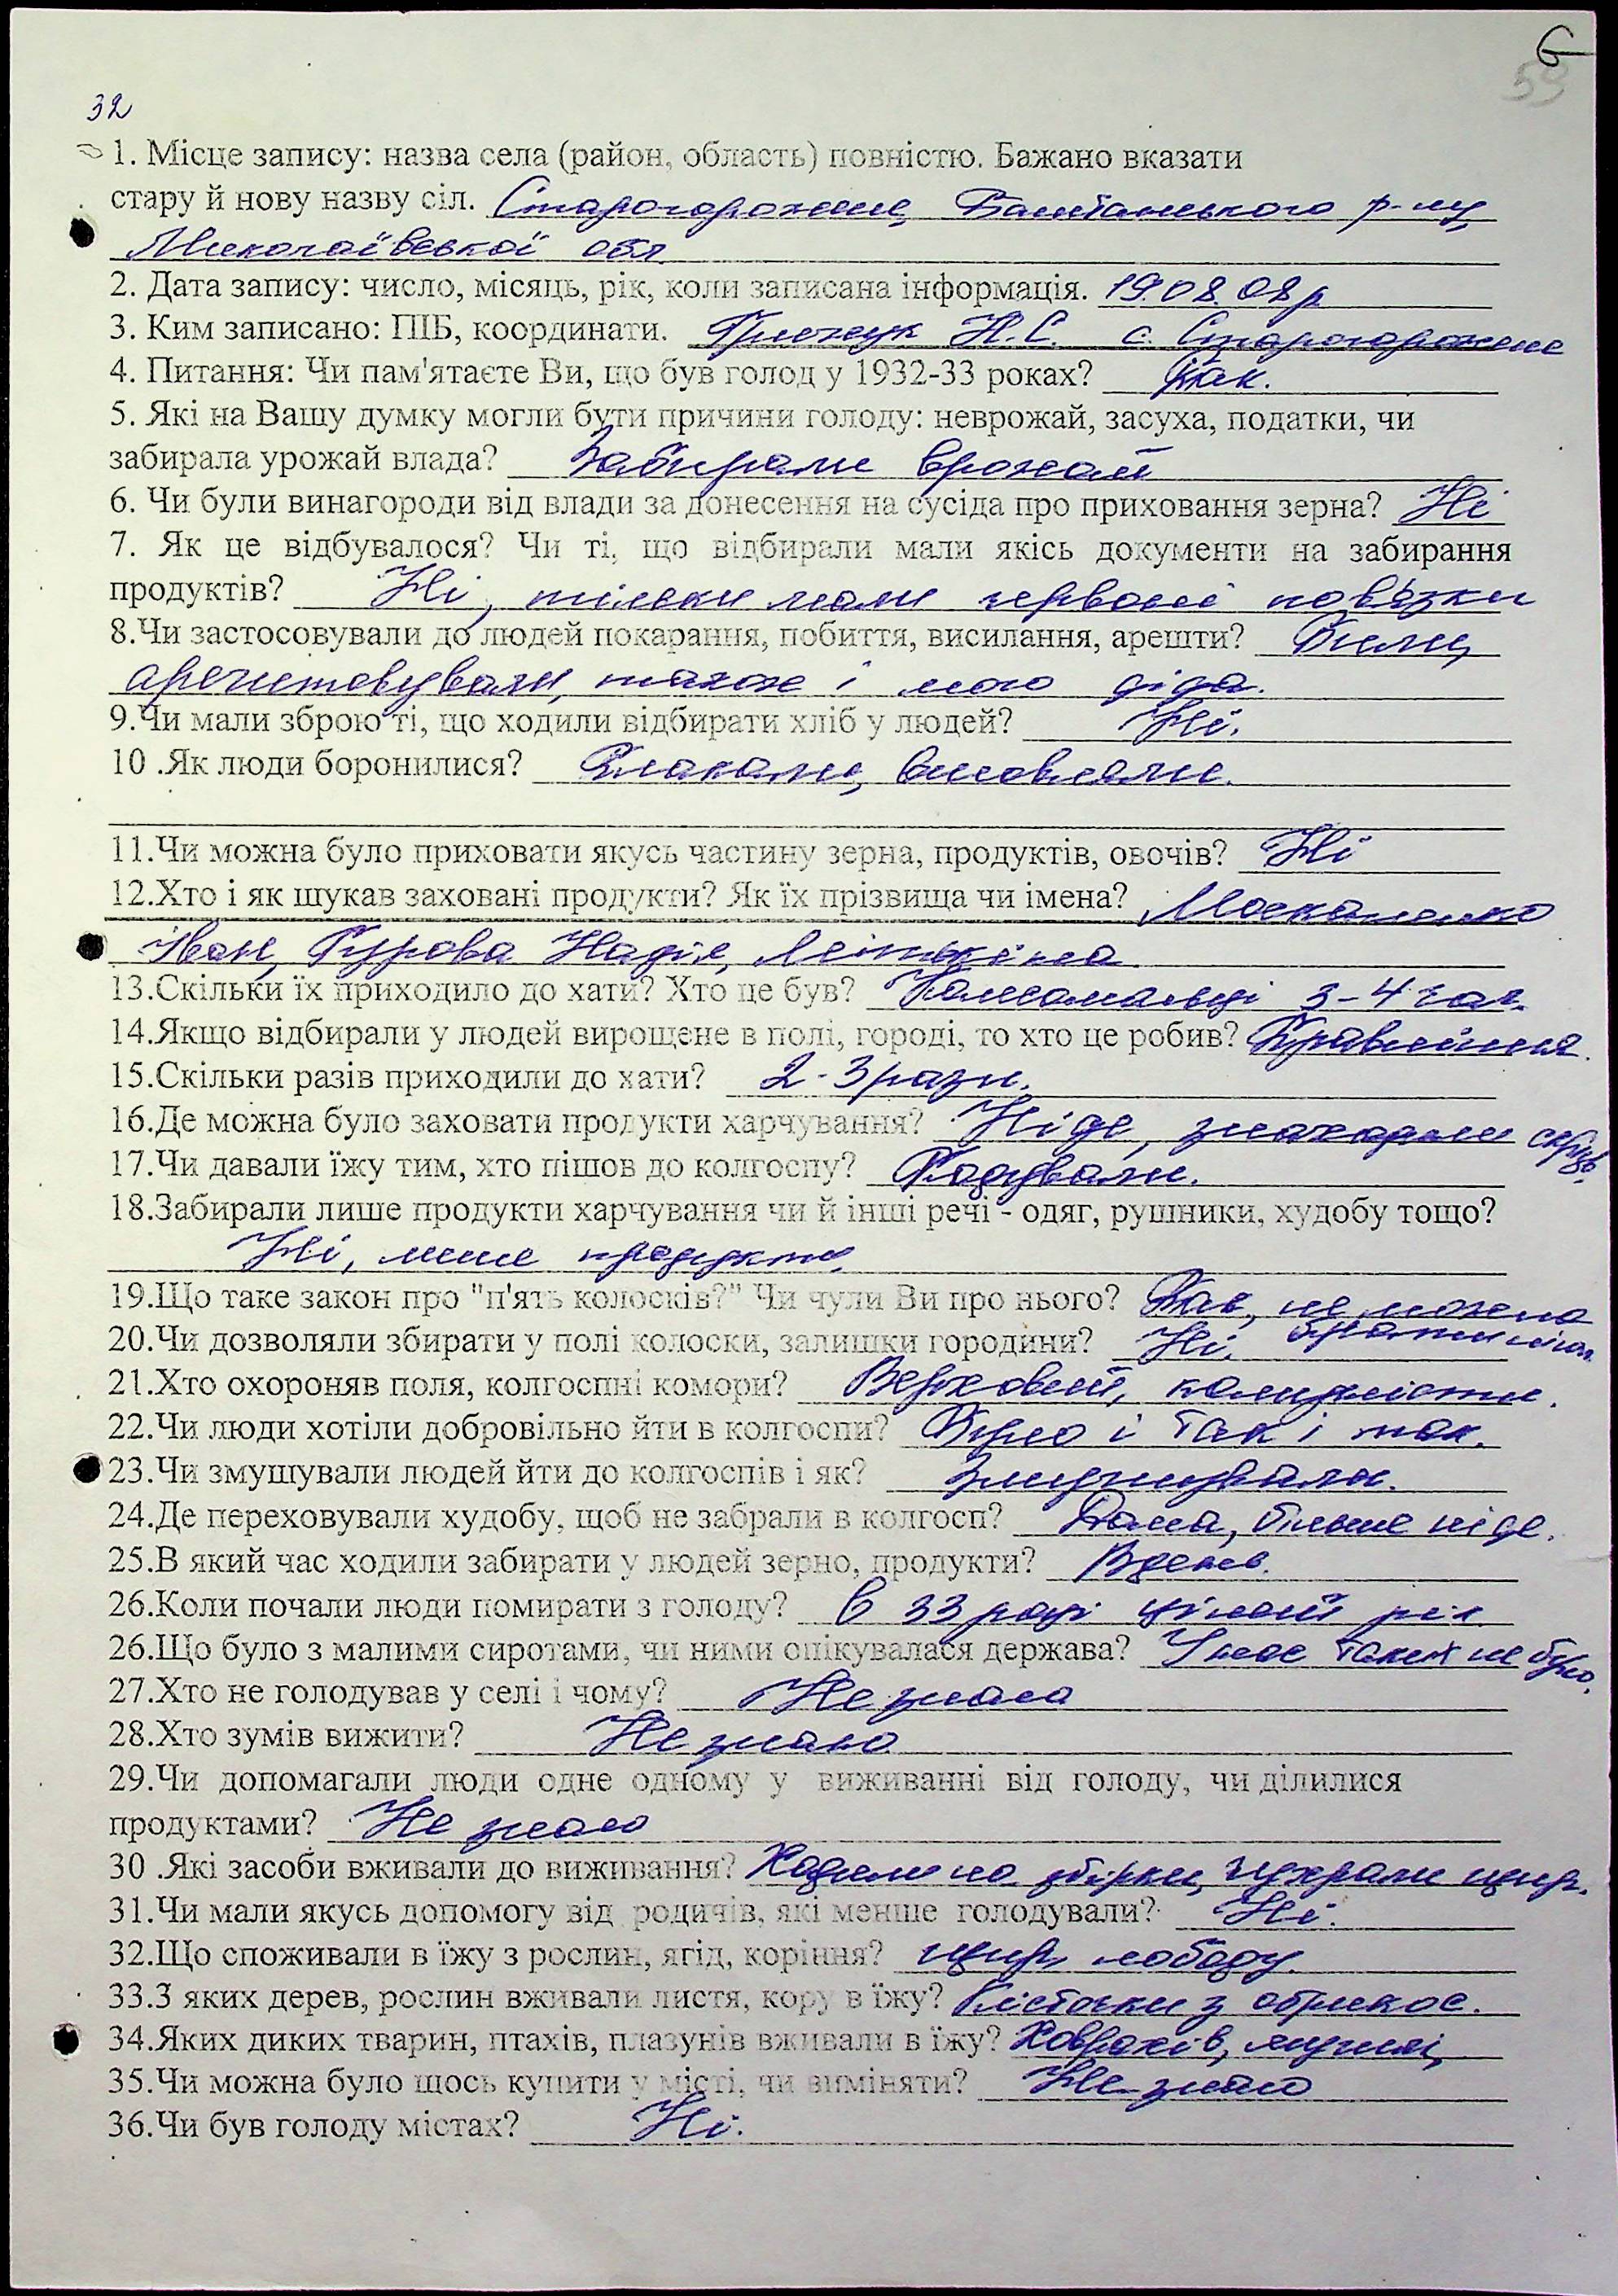 59
32
1. Місце запису: назва села (район, область) повністю. Бажано вказати
стару й нову назву сіл. Старогорожене, Баштанського р-ну,
Миколаївської обл
2. Дата запису: число, місяць, рік, коли записана інформація. 19.08.08р
3. Ким записано: ПІБ, координати. Н.С. с. Старогорожене
4. Питання: Чи пам'ятаєте Ви, що був голод у 1932-33 роках? Так.
5. Які на Вашу думку могли бути причини голоду: неврожай, засуха, податки, чи
забирала урожай влада? Забирали врожай
6. Чи були винагороди від влади за донесення на сусіда про приховання зерна? Ні
7. Як це відбувалося? Чи ті, що відбирали мали якісь документи на забирання
продуктів? Ні, тільки мали червоні пов'язки
8.Чи застосовували до людей покарання, побиття, висилання, арешти? Били,
арештовували, також і мого діда.
9.Чи мали зброю ті, що ходили відбирати хліб у людей? Ні.
10 .Як люди боронилися? Плакали,
11.Чи можна було приховати якусь частину зерна, продуктів, овочів? Ні
12.Хто і як шукав заховані продукти? Як їх прізвища чи імена? Москаленко
Іван, Надія,
13.Скільки їх приходило до хати? Хто це був? Комсомольці 3-4 чол.
14.Якщо відбирали у людей вирощене в полі, городі, то хто це робив? Правління.
15.Скільки разів приходили до хати? 2-3 рази.
16.Де можна було заховати продукти харчування? Ніде, знаходили скрізь.
17.Чи давали їжу тим, хто пішов до колгоспу? Годували.
18.Забирали лише продукти харчування чи й інші речі - одяг, рушники, худобу тощо?
Ні, лише продукти.
19.Що таке закон про "п'ять колосків?" Чи чули Ви про нього? Так, не можна
20.Чи дозволяли збирати у полі колоски, залишки городини? Ні. було
21.Хто охороняв поля, колгоспні комори? Верховий, комуністи.
22.Чи люди хотіли добровільно йти в колгоспи? Було і так і так.
23.Чи змушували людей йти до колгоспів і як? Змушували.
24.Де переховували худобу, щоб не забрали в колгосп? Дома, більше ніде.
25.В який час ходили забирати у людей зерно, продукти? Вдень.
26.Коли почали люди помирати з голоду? В 33 році цілий рік
26.Що було з малими сиротами, чи ними опікувалася держава? У нас таких не було.
27.Хто не голодував у селі і чому? Не знаю
28.Хто зумів вижити? Не знаю
29.Чи допомагали люди одне одному у виживанні від голоду, чи ділилися
продуктами? Не знаю
30 .Які засоби вживали до виживання? Ходили на збірки, щир.
31.Чи мали якусь допомогу від родичів, які менше голодували? Ні.
32.Що споживали в їжу з рослин, ягід, коріння? щир, лободу.
33.З яких дерев, рослин вживали листя, кору в їжу? Кісточки з абрикос.
34.Яких диких тварин, птахів, плазунів вживали в їжу? Ховрахів,
35.Чи можна було щось купити у місті, чи виміняти? Не знаю
36.Чи був голоду містах? Ні.